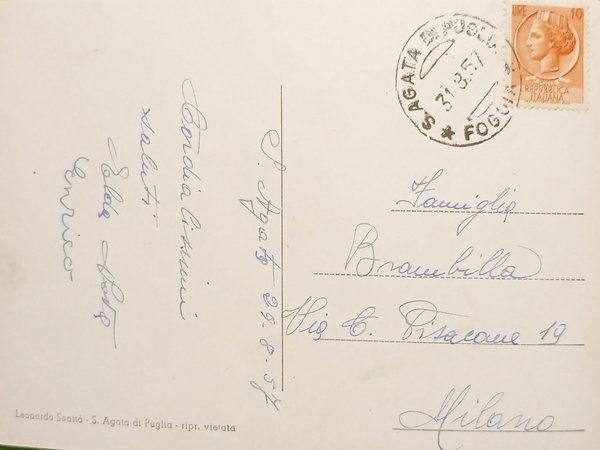 Cordialissimi
saluti
Elda
Enrico
S. Agata 29-8-57
Leonardo Sanità - S. Agata di Puglia - ripr. vietata
S. AGATA DI PUGLIA
FOGGIA
31.8.57
LIRE 10
REPUBBLICA
ITALIANA
Famiglia
Brambilla
Via C. Pisacane 19
Milano